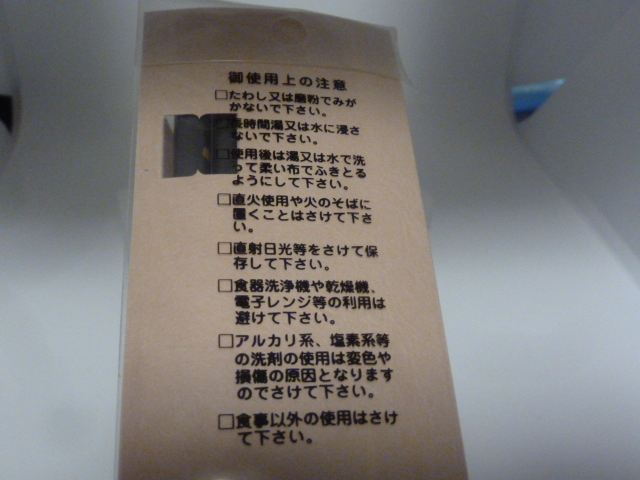 御使用上の注意
□たわし又は磨粉でみが
かないで下さい。
長時間湯又は水に浸さ
ないで下さい。
□使用後は湯又は水で洗
って柔い布でふきとる
ようにして下さい。
□直火使用や火のそばに
置くことはさけて下さ
い。
□直射日光等をさけて保
存して下さい。
□食器洗浄機や乾燥機、
電子レンジ等の利用は
避けて下さい。
□アルカリ系、塩素系等
の洗剤の使用は変色や
損傷の原因となります
のでさけて下さい。
□食事以外の使用はさけ
て下さい。